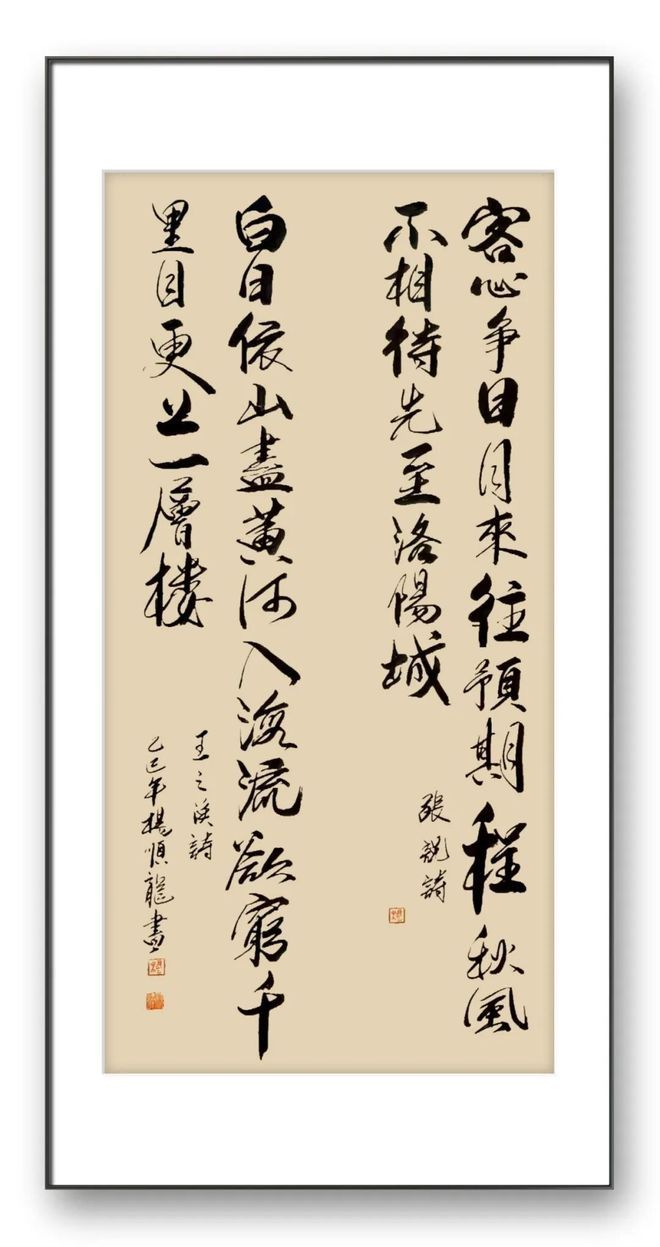 客心争日月來往預期程秋風
不相待先至洛陽城
張說詩
白日依山盡黃河入海流欲窮千
里目更上一層楼
王之渙詩
乙巳年楊順龍書